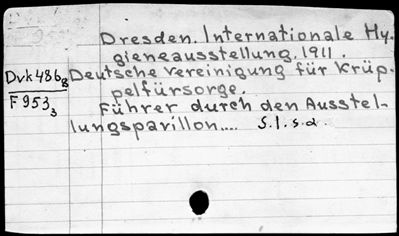 Dresden. Internationale Hy-
gieneausstellung. 1911.
Dvk486g Deutsche Vereinigung für Krüp-
pelfürsorge.
F953₃
Führer durch den Ausstel-
lungspavillon.... S.l.s.a.